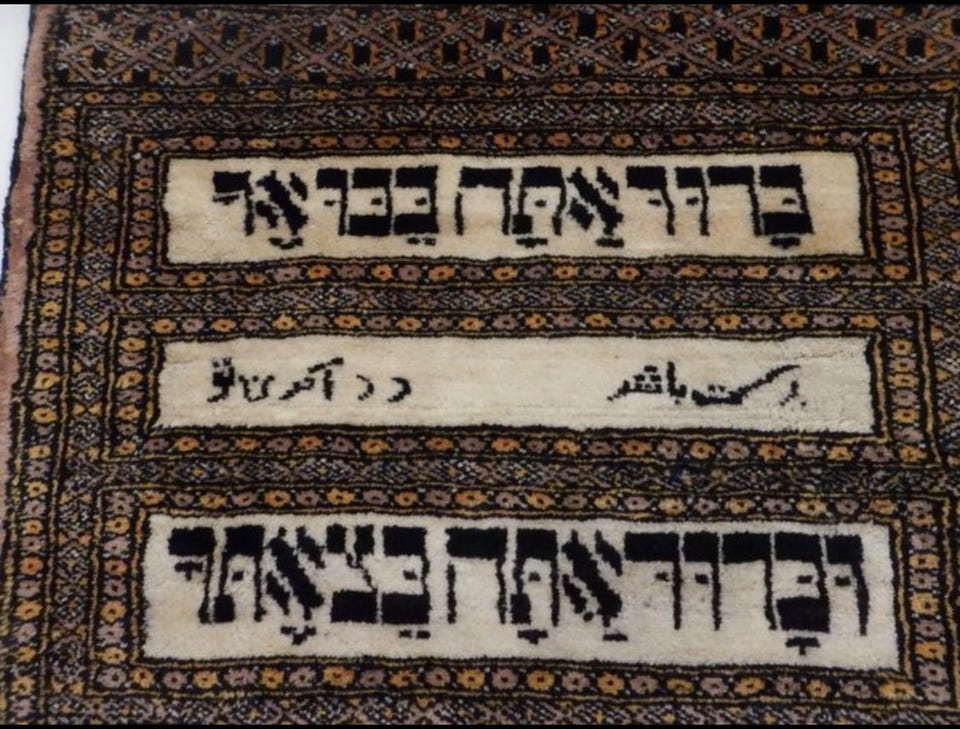 בָּרוּךְ אַתָּה בְּבוּאֶךָ
برکت باشد در آمدن تو
וּבָרוּךְ אַתָּה בְּצֵאתֶךָ